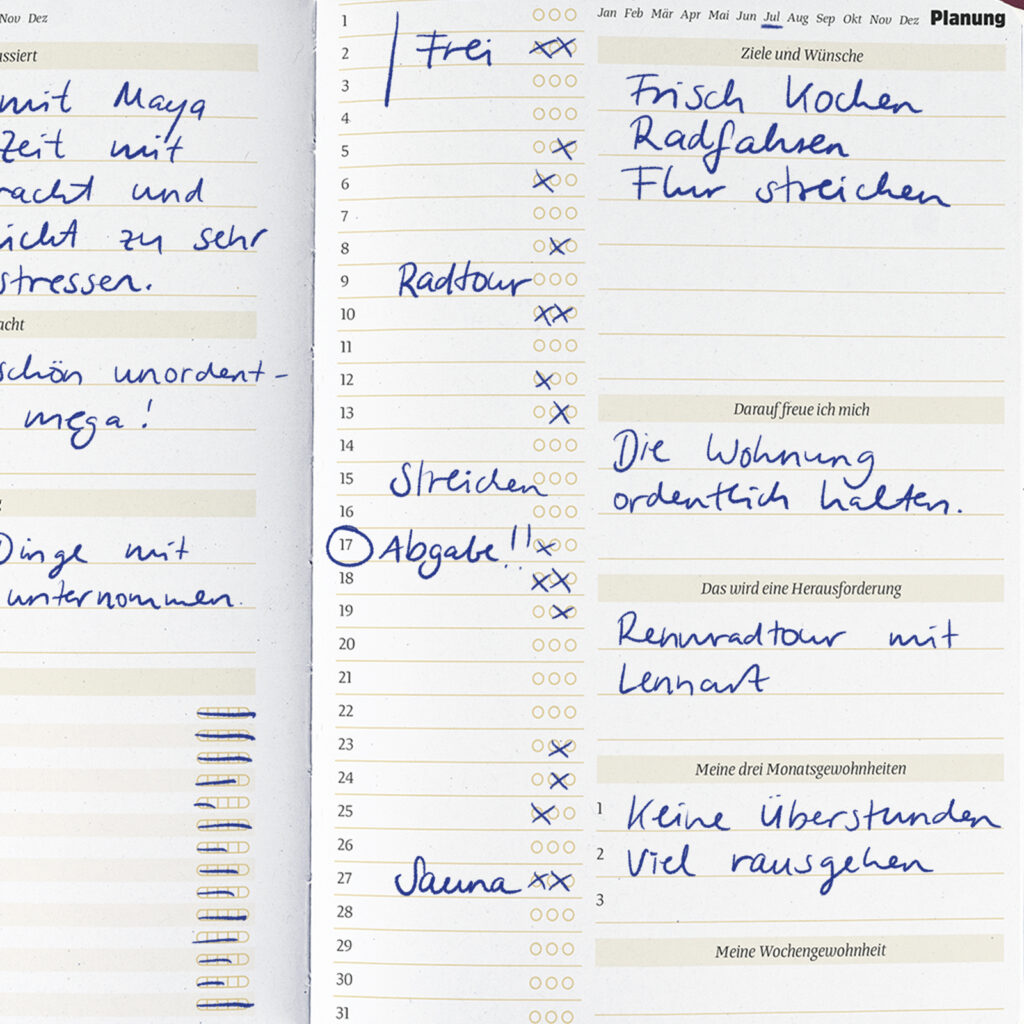 Nov Dez
ssiert
mit Maya
Zeit mit
racht und
icht zu sehr
stressen.
acht
schön unordent-
mega!
Dinge mit
unternommen.
1
2 Frei
3
4
5
6
7
8
9 Radtour
10
11
12
13
14
15 Streichen
16
17 Abgabe!!
18
19
20
21
22
23
24
25
26
27 Sauna
28
29
30
31
Jan Feb Mär Apr Mai Jun Jul Aug Sep Okt Nov Dez Planung
Ziele und Wünsche
Frisch Kochen
Radfahren
Flur streichen
Darauf freue ich mich
Die Wohnung
ordentlich halten.
Das wird eine Herausforderung
Rennradtour mit
Lennart
Meine drei Monatsgewohnheiten
1 Keine Überstunden
2 Viel rausgehen
3
Meine Wochengewohnheit